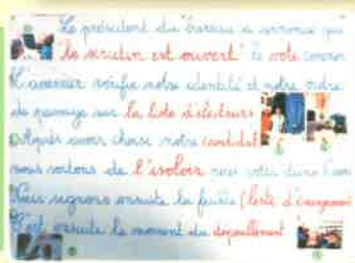 Le président du bureau a annoncé que
"le scrutin est ouvert" le vote commence
L'assesseur vérifie notre identité et notre ordre
de passage sur la liste d'électeurs
Après avoir choisi notre candidat
nous sortons de l'isoloir nous votons dans l'urne
Nous signons ensuite la feuille (liste d'émargement)
C'est ensuite le moment du dépouillement